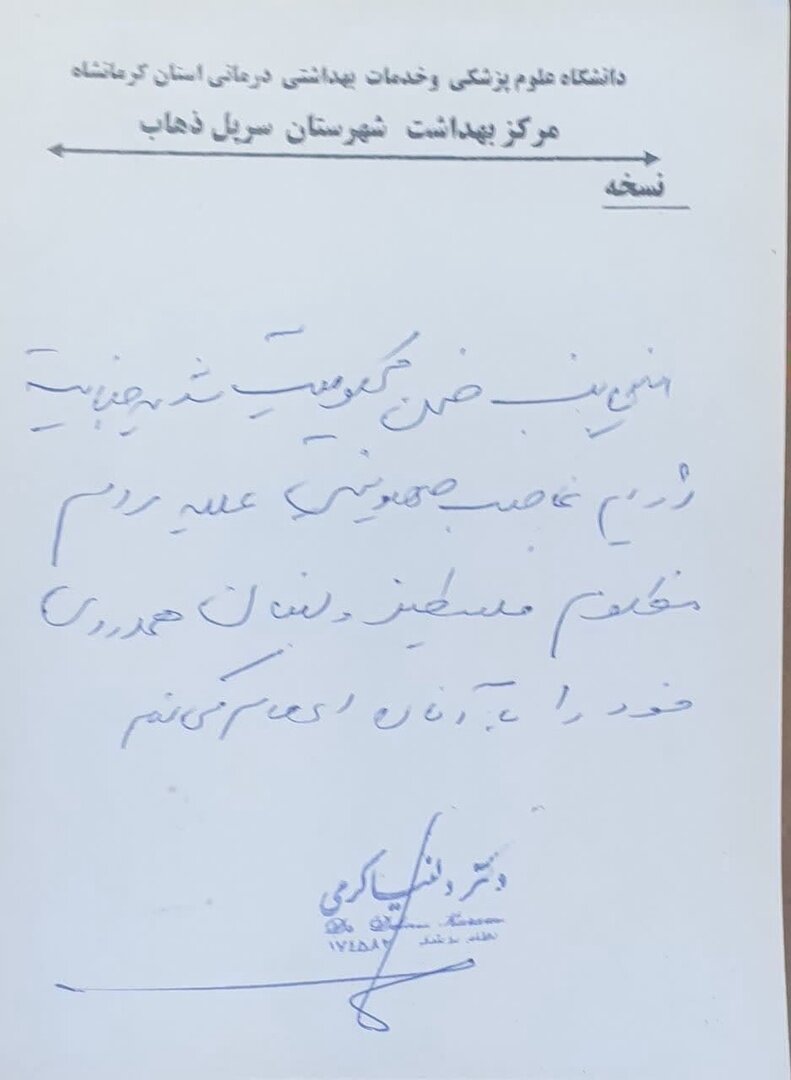 دانشگاه علوم پزشکی وخدمات بهداشتی درمانی استان کرمانشاه
مرکز بهداشت شهرستان سرپل ذهاب
نسخه
اینجانب ضمن محکومیت شدید جنایت
رژیم غاصب صهیونیستی علیه مردم
مظلوم فلسطین و لبنان همدردی
خود را با آنان اعلام می‌کنم
دکتر دلنیا کرمی
Dr
۱۷۴۵۸۲